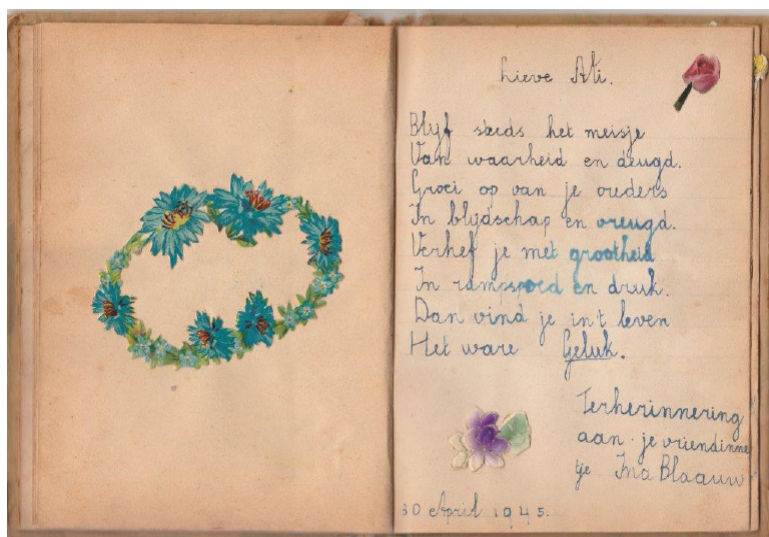 Lieve Ati.
Blijf steeds het meisje
Van waarheid en deugd.
Groei op van je ouders
In blijdschap en vreugd.
Verhef je met grootheid
In rampspoed en druk.
Dan vind je in't leven
Het ware Geluk.
Terherinnering
aan je vriendinne
tje Ina Blaauw
30 April 1945.